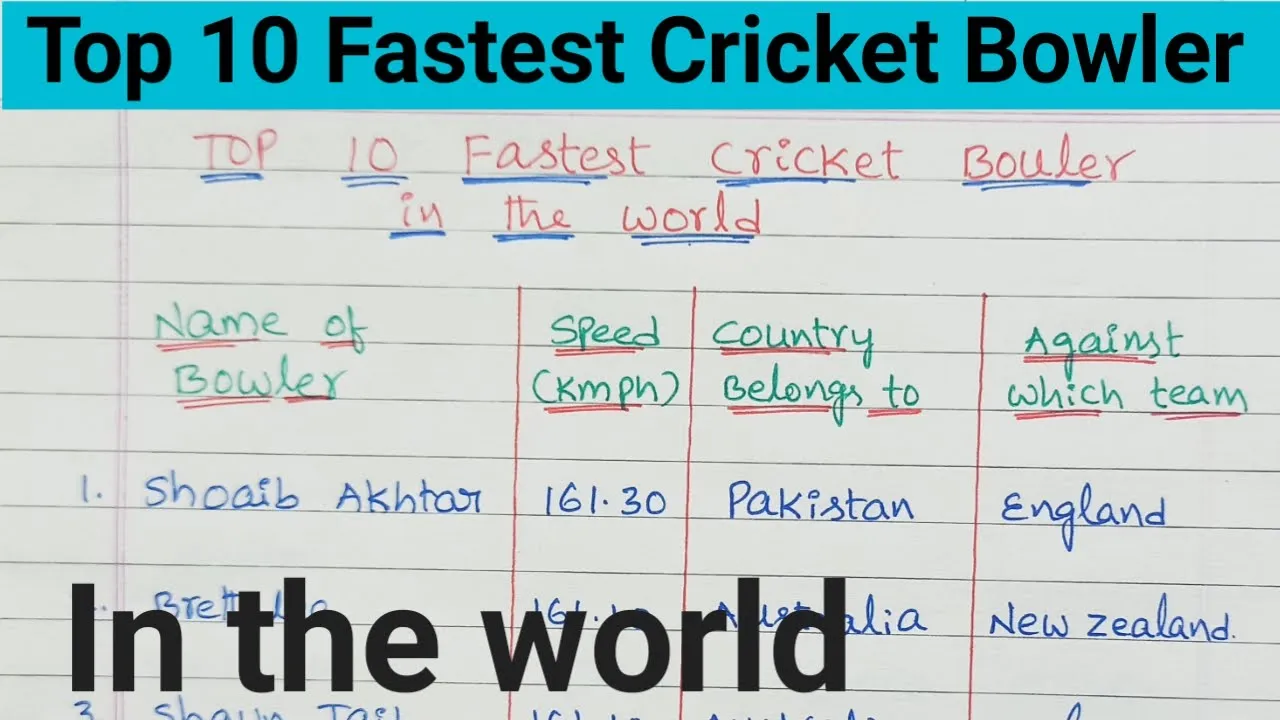 Top 10 Fastest Cricket Bowler
TOP 10 Fastest Cricket Bouler
in the world
Name of Bowler
Speed (Kmph)
Country Belongs to
Against which team
1. Shoaib Akhtar 161.30 Pakistan England
Brett Australia New zealand.
In the world
3